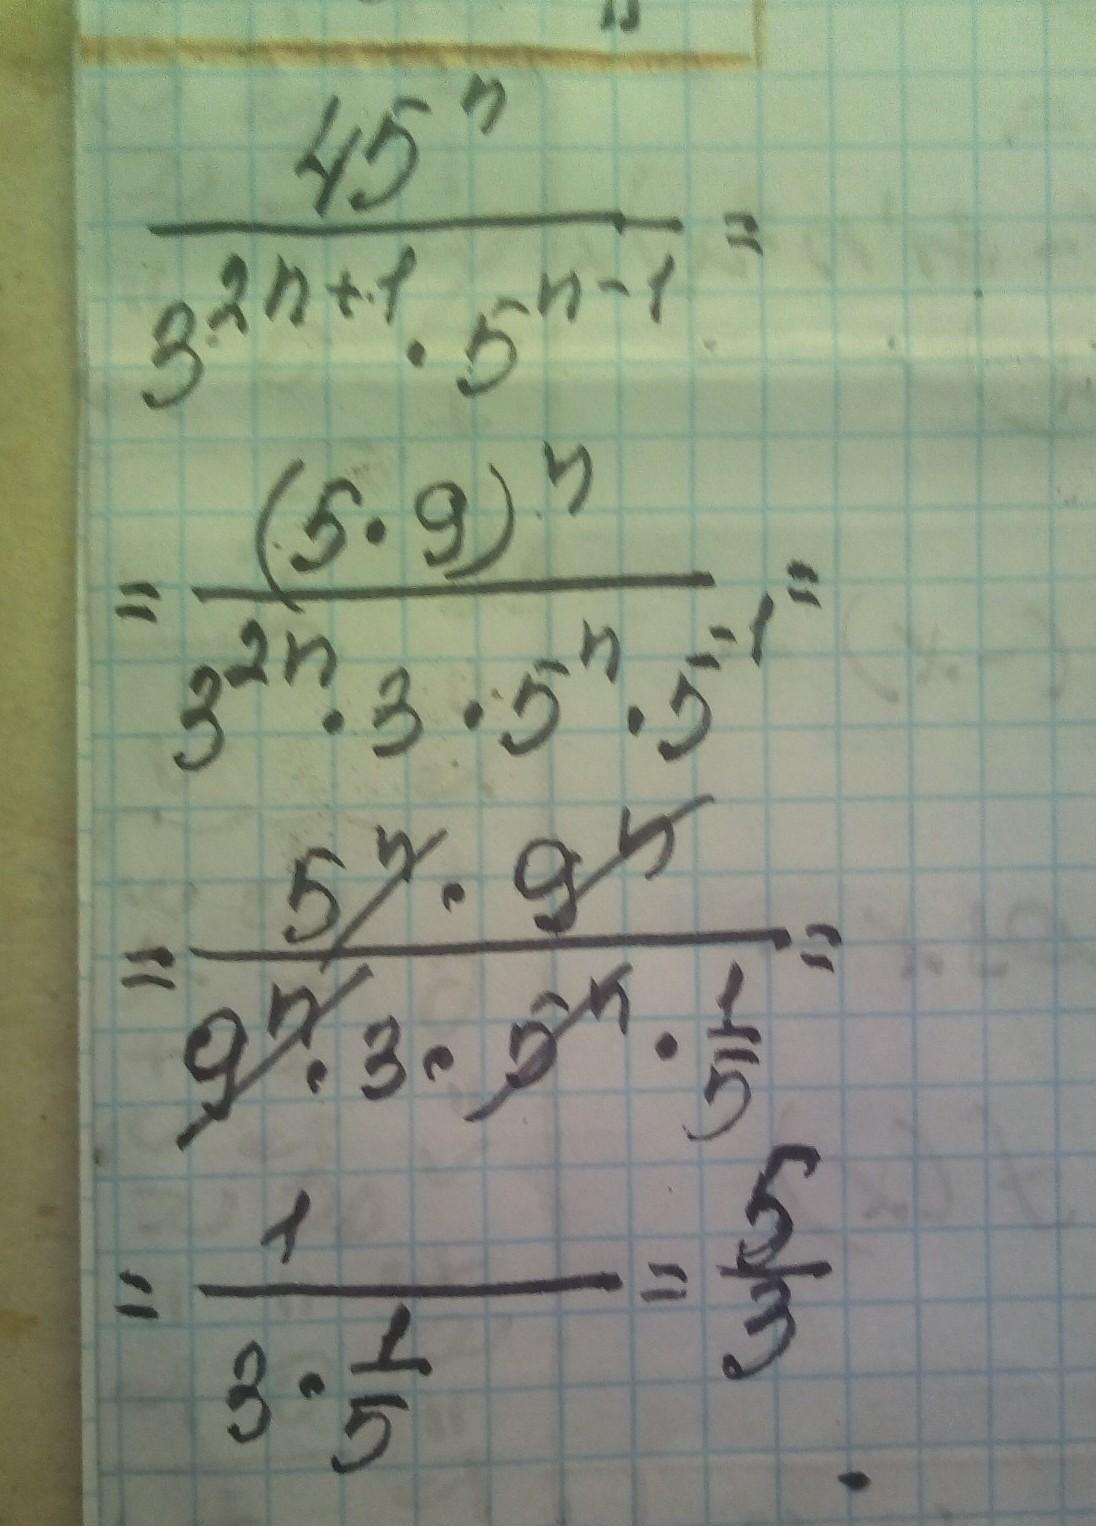 45^n / (3^(2n+1) · 5^(n-1)) =
= (5 · 9)^n / (3^(2n) · 3 · 5^n · 5^(-1)) =
= (5^n · 9^n) / (9^n · 3 · 5^n · 1/5) =
= 1 / (3 · 1/5) = 5/3